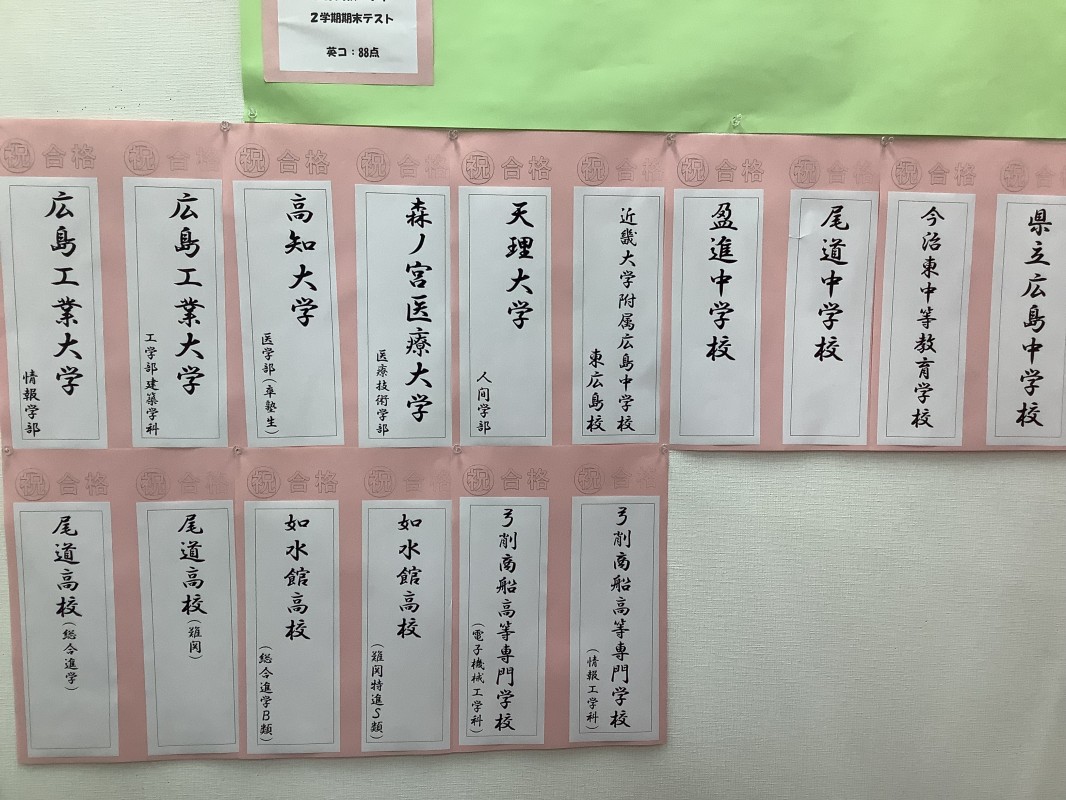 2学期期末テスト
英コ：88点
祝 合格
広島工業大学
情報学部
祝 合格
広島工業大学
工学部建築学科
祝 合格
高知大学
医学部（卒塾生）
祝 合格
森ノ宮医療大学
医療技術学部
祝 合格
天理大学
人間学部
祝 合
近畿大学附属広島中学校
東広島校
祝 合格
盈進中学校
祝 合
尾道中学校
祝 合格
今治東中等教育学校
祝 合
県立広島中学校
祝 合格
尾道高校
（総合進学）
祝 合
尾道高校
（難関）
祝 合格
如水館高校
（総合進学B類）
祝 合格
如水館高校
（難関特進S類）
祝 合格
弓削商船高等専門学校
（電子機械工学科）
祝 合格
弓削商船高等専門学校
（情報工学科）